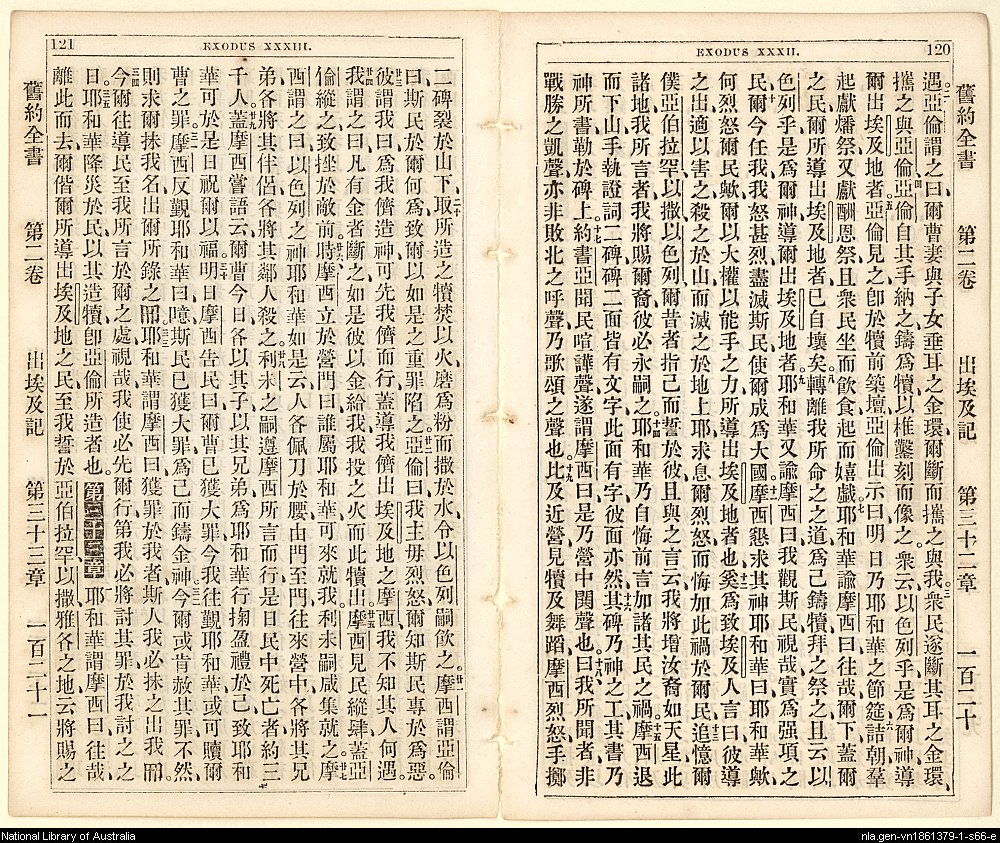 120
EXODUS XXXII.
舊約全書 第二卷 出埃及記 第三十二章 一百二十
遇、二亞倫謂之曰、爾曹妻與子女垂耳之金環、爾斷而攜之與我、三衆民遂斷其耳之金環、
攜之與亞倫、四亞倫自其手納之、鑄爲犢、以椎鑿刻而像之、衆云、以色列乎、是爲爾神、導
爾出埃及地者、五亞倫見之、卽於犢前築壇、亞倫出示曰、明日乃耶和華之節筵、六詰朝羣
起、獻燔祭、又獻酬恩祭、且衆民坐而飮食、起而嬉戲、七耶和華諭摩西曰、往哉、爾下、蓋爾
之民、爾所導出埃及地者、已自壞矣、八轉離我所命之之道、爲己鑄犢、拜之、祭之、且云、以
色列乎、是爲爾神、導爾出埃及地者、九耶和華又諭摩西曰、我觀斯民、視哉、實爲强項之
民、十爾今任我、我怒甚烈、盡滅斯民、使爾成爲大國、十一摩西懇求其神耶和華曰、耶和華歟、
何烈怒爾民歟、爾以大權、以能手之力、所導出埃及地者也、十二奚爲致埃及人言曰、彼導
之出、適以害之、殺之於山、而滅之於地上耶、求息爾烈怒、而悔加此禍於爾民、十三追憶爾
僕亞伯拉罕、以撒、以色列、爾昔者指己而誓於彼、且與之言云、我將增汝裔如天星、此
諸地、我所言者、我將賜爾裔、彼必永嗣之、十四耶和華乃自悔前言、加諸其民之禍、十五摩西退
而下山、手執證詞二碑、碑二面皆有文字、此面有字、彼面亦然、十六其碑乃神之工、其書乃
神所書、勒於碑上、十七約書亞聞民喧譁聲、遂謂摩西曰、是乃營中鬨聲也、十八曰、我所聞者、非
戰勝之凱聲、亦非敗北之呼聲、乃歌頌之聲也、十九比及近營、見犢及舞蹈、摩西烈怒、手擲
121
EXODUS XXXIII.
二碑、裂於山下、二十取所造之犢、焚以火、磨爲粉、而撒於水、令以色列嗣飮之、廿一摩西謂亞倫
曰、斯民於爾何爲、致爾以如是之重罪陷之、廿二亞倫曰、我主毋烈怒、爾知斯民專於爲惡、
廿三彼謂我曰、爲我儕造神、可先我儕而行、蓋導我儕出埃及地之摩西、我不知其人何遇、
廿四我謂之曰、凡有金者斷之、如是彼以金給我、我投之火、而此犢出、廿五摩西見民縱肆、蓋亞
倫縱之、致挫於敵前、廿六時摩西立於營門曰、誰屬耶和華、可來就我、利未嗣咸集就之、廿七摩
西謂之曰、以色列之神耶和華如是云、人各佩刀於腰、由門至門、往來營中、各將其兄
弟、各將其伴侶、各將其鄰人殺之、廿八利未之嗣、遵摩西所言而行、是日民中死亡者、約三
千人、廿九蓋摩西嘗語云、爾曹今日各以其子、以其兄弟、爲耶和華行掬盈禮於己、致耶和
華可於是日、祝爾以福、三十明日摩西告民曰、爾曹已獲大罪、今我往覲耶和華、或可贖爾
曹之罪、卅一摩西反覲耶和華曰、噫、斯民已獲大罪、爲己而鑄金神、卅二今爾或肯赦其罪、不然、
則求爾抹我名、出爾所錄之冊、卅三耶和華謂摩西曰、獲罪於我者、斯人我必抹之出我冊、
三四今爾往、導民至我所言於爾之處、視哉、我使必先爾行、第我必將討其罪、於我討之之
日、三五耶和華降災於民、以其造犢、卽亞倫所造者也、
第三十三章
一耶和華謂摩西曰、往哉、
離此而去、爾偕爾所導出埃及地之民、至我誓於亞伯拉罕、以撒、雅各之地、云、將賜之
舊約全書 第二卷 出埃及記 第三十三章 一百二十一
National Library of Australia
nla.gen-vn1861379-1-s66-e